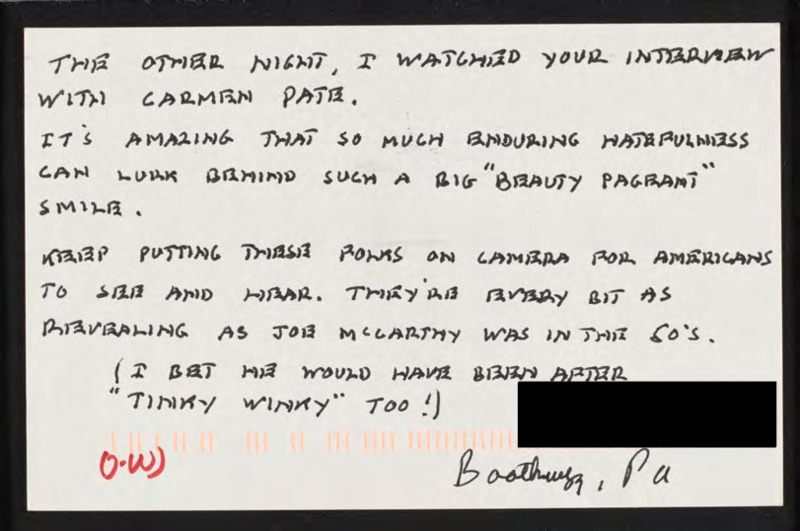 THE OTHER NIGHT, I WATCHED YOUR INTERVIEW
WITH CARMEN PATE.
IT'S AMAZING THAT SO MUCH ENDURING HATEFULNESS
CAN LURK BEHIND SUCH A BIG "BEAUTY PAGEANT"
SMILE.
KEEP PUTTING THESE FOLKS ON CAMERA FOR AMERICANS
TO SEE AND HEAR. THEY'RE EVERY BIT AS
REVEALING AS JOE MCCARTHY WAS IN THE 50'S.
(I BET HE WOULD HAVE BEEN AFTER
"TINKY WINKY" TOO!)
, Pa